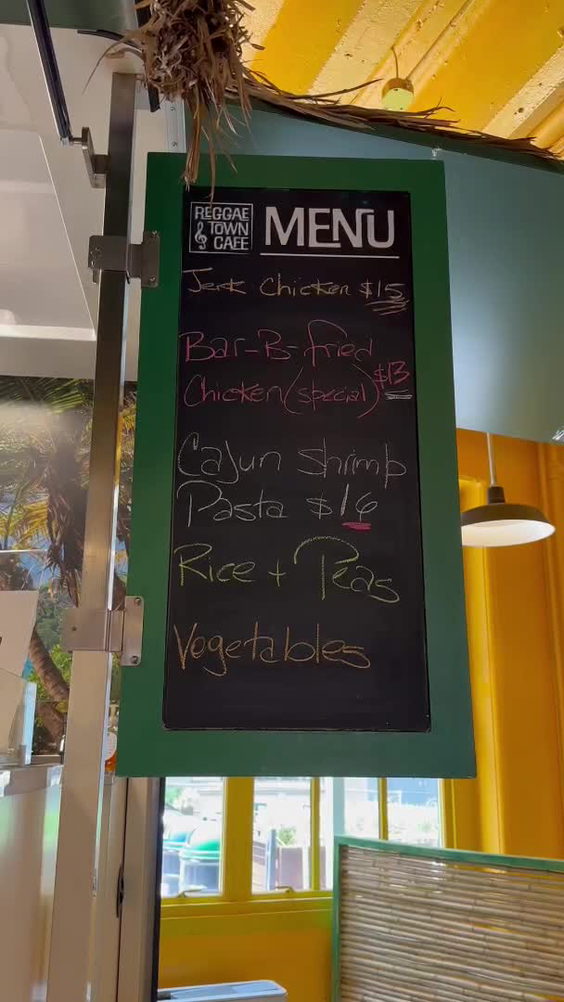 REGGAE
TOWN
CAFE
MENU
Jerk Chicken $15
Bar-B-fried
Chicken (special) $13
Cajun Shrimp
Pasta $16
Rice + Peas
Vegetables